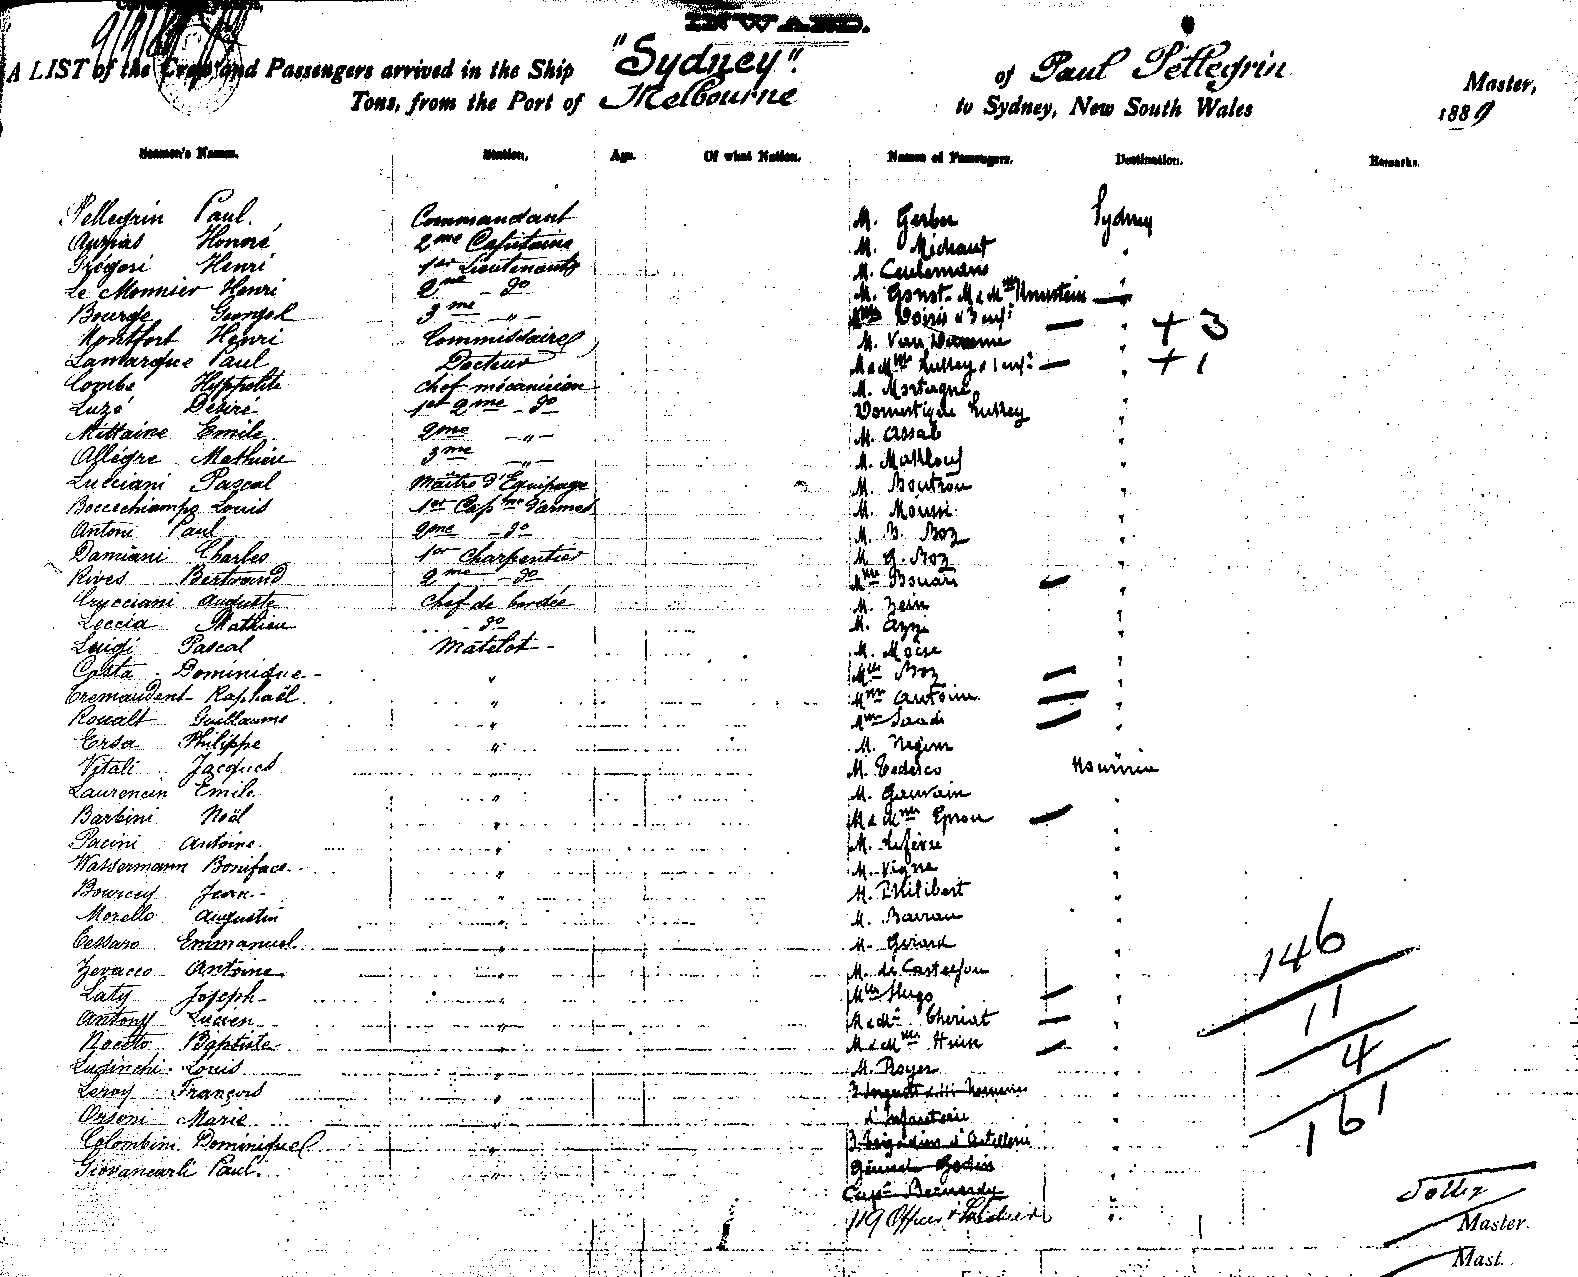 INWARD.
A LIST of the Crew and Passengers arrived in the Ship "Sydney". of Paul Pellegrin Master,
Tons, from the Port of Melbourne to Sydney, New South Wales 1889
Seamen's Names. Station. Age. Of what Nation. Names of Passengers. Destination. Remarks.
Pellegrin Paul. Commandant M. Gerber Sydney
Honoré 2me Capitaine M. Michaut "
Grégori Henri 1er Lieutenant M. Ceulemans "
Le Monnier Henri 2me - do M. "
Bourge 3me - " - 3 enfts " + 3
Montfort Henri Commissaire M. "
Lamarque Paul Docteur M & Mme Lussey & 1 enft " + 1
Combe Hyppolite chef mécanicien M. Mortagne "
Luzé Désiré 1er 2me - do Domestique Lussey "
Mittaine Emile 2me - " - M. Assab "
Allègre Mathieu 3me - " - M. "
Lucciani Pascal Maître d'Equipage M. Boutrou "
Boccechiampe Louis 1er Capne d'armes M. "
Antoni Paul 2me - do M. B. Boz "
Damiani Charles 1er Charpentier M. G. Boz "
Rives Bertrand 2me - do Mme "
Crycciani Auguste chef de bordée M. Zein "
Leccia Mathieu - do M. Azzi "
Luigi Pascal Matelot M. "
Costa Dominique " Mlle Boz "
Cremaudent Raphaël " Mme Antoin "
Roualt Guillaume " Mme Saadi "
Ersa Philippe " M. Negem "
Vitali Jacques " M. Tedesco Nouméa
Laurencin Emile " M. Gauvain "
Barbini Noël " M & Mme Eprou "
Pacini Antoine " M. Lefèvre "
Wassermann Boniface " M. Vigne "
Bourcey Jean " M. Philibert "
Morello Augustin " M. Barrau "
Cessaro Emmanuel " M. Girard " 146
Zevacco Antoine " M. de Castesjou "
Laty Joseph " Mme Hugo " 11
Antony Lucien " M & Me Theriat "
Noceto Baptiste " M & Mme Huin " 4
Ludinchi Louis " M. Royer "
Leroy François " 3 "
Orsoni Marie " d'Infanterie " 161
Colombini Dominique " 3 Brigadiers d'Artillerie "
Giovancarli Paul. Général Godin "
Capne Bernardy "
119 Offices & "
Master.
Mast.